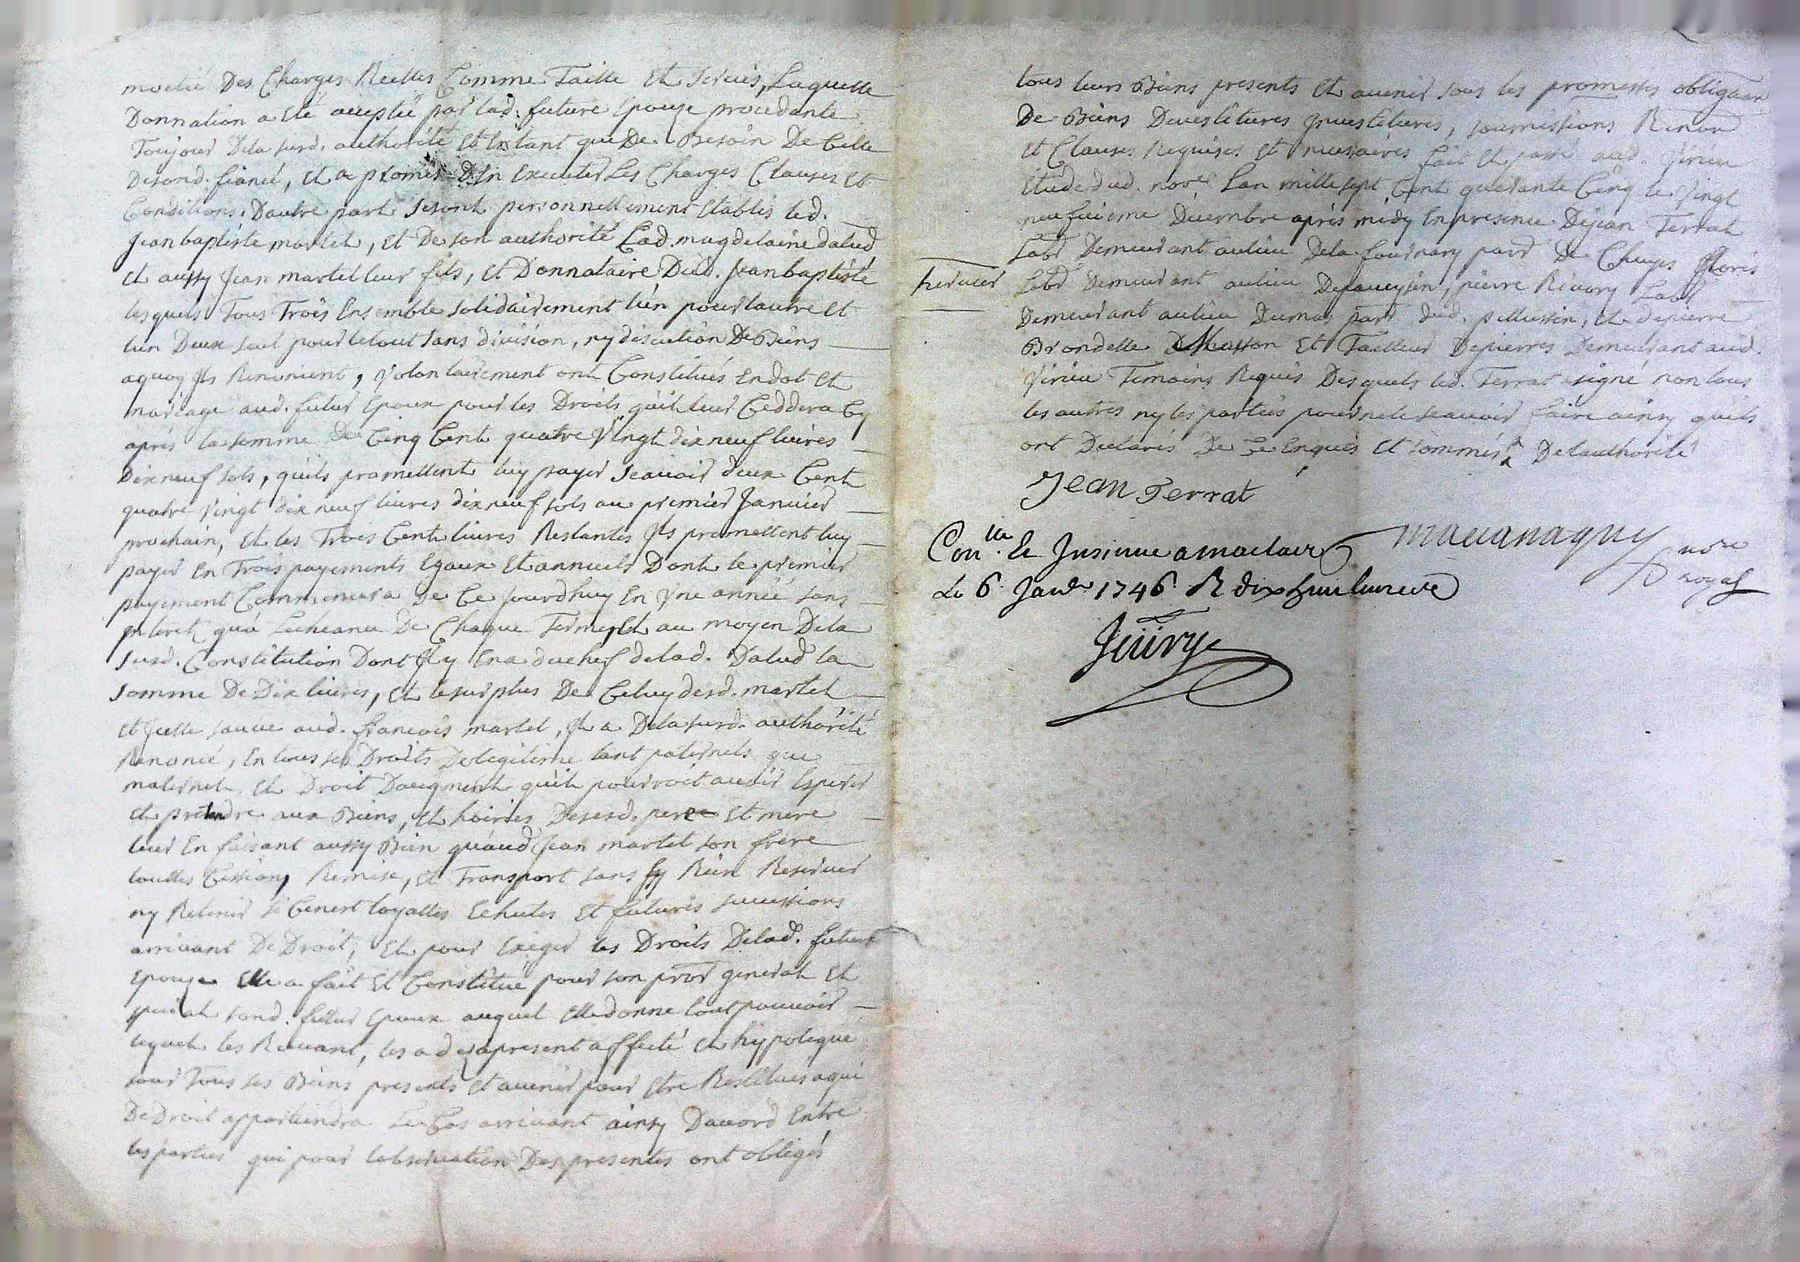 moetié Des Charges Reelles Comme Taille Et Servis, Laquelle
Donnation a Eté acceptée par lad. future Epouze procedante
Toujour Dela susd. authorité Et Entant que De Besoin De Celle
Desond. fiancé, Et a promis D'En Executer Les Charges Clauses Et
Conditions. Dautre part Seront personnellement Etablis led.
Jean baptiste martel, Et De son authorité Lad. magdelaine dalud
Et aussy Jean martel leur fils, Et Donnataire Dud. Jean baptiste
lesquels Tous Trois Ensemble solidairement l'un pour lautre Et
l'un Deux seul pour letout sans division, ny discution De Biens
aquoy Ils Renoncent, Volontairement ont Constitués En dot Et
mariage aud. futur Epoux pour les Droits qu'il leur Ceddera Cy
aprés la somme De Cinq Cent quatre Vingt dix neuf livres
Dix neuf sols, qu'ils promettent luy payer Scavoir deux Cent
quatre Vingt dix neuf livres dix neuf sols au premier Janvier
prochain, Et les Trois Cent livres Restantes Ils promettent luy
payer En Trois payements Egaux Et annuels Dont le premier
payement Commencera De Ce Jourdhuy En Une année sans
Interet qu'a Lecheance De Chaque Terme, Et au moyen Dela
susd. Constitution Dont Il y En a du chef delad. Dalud la
somme De Dix livres, Et le surplus De Celuy desd. martel
Et Icelle sauve aud. francois martel, Il a Dela susd. authorité
Renoncé, En tous ses Droits De legitime tant paternels que
maternels, Et Droit Daugment qu'il pourroit avoir Esperer
Et pretendre aux Biens, Et hoiries Desesd. pere Et mere
leur En faisant aussy Bien qu'aud. Jean martel son frere
touttes Cession, Remise, Et Transport sans sy Rien Reserver
ny Retenir si Ce n'est loyalles Echutes Et futures successions
arrivant De Droit, Et pour Exiger les Droits Delad. future
Epouze Elle a fait Et Constitué pour son procr general Et
special sond. futur Epoux auquel Elle donne tout pouvoir
lequel les Recevant, les a des apresent affecté Et hypotequé
sur Tous ses Biens presents Et avenir pour Etre Restitués a qui
De Droit appartiendra Le Cas arrivant ainsy Daccord Entre
les parties qui pour lobservation Des presentes ont obligés
tous leurs Biens presents Et avenir sous les promesses obligations
De Biens Devestitures Investitures, soumissions Renon
Et Clauses Requises Et necessaires fait Et passé aud. Virieu
Etude dud. nore Lan mille sept Cent quarante Cinq le Vingt
neufvieme Décembre aprés midy En presence De Jean Terrat
Labr Demeurant au lieu Dela fournary parr De Chuyes
Labr Demeurant au lieu pierre Rivory Labr
Demeurant au lieu Dumas parr dud. pellussin, Et de pierre
Brondelle Masson Et Tailleur De pierres Demeurant aud.
Virieu Temoins Requis Desquels led. Terrat a signé non tous
les autres ny les parties pour ne le scavoir faire ainsy qu'ils
ont Declarés De Ce Enquis Et sommés Delauthorité
Jean Terrat
Conlle Et Insinué a maclare
Le 6 Janr 1746 R dix huit livres
nore
royal